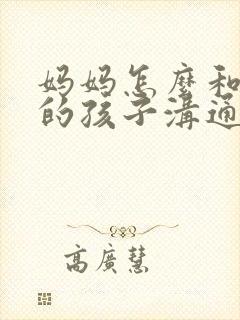 妈妈怎麼和
的孩子溝通
高廣慧